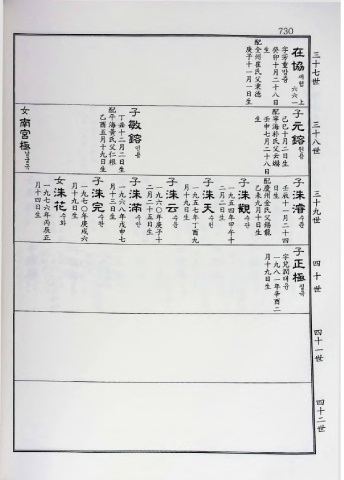 730
三十七世
在協 재협
六六一上
字芳重 방중
癸卯十月二十八
日生
配全州崔氏父東
庚子十一月一日生
三十八世
子 元鎔 원용
己巳十月二日生
配寧海朴氏父云
壬申七月二十八
日生
子 敬鎔
丁丑十二月二日生
配平海黃氏父仁根
乙酉五月十九日生
女 南宮極 남궁극
三十九世
子 洙濬 수준
壬辰十一月二十四
日生
配慶州金氏父錫龍
乙未九月十日生
子 洙觀 수관
一九五四年甲午十
二月二十日生
子 洙天 수천
一九五七年丁酉九
月七日生
子 洙云 수운
一九六〇年庚子十
二月二十五日生
子 洙滿 수만
一九六八年戊申七
月十三日生
子 洙完 수완
一九七〇年庚戌六
月十九日生
女 洙花 수화
一九七六年丙辰正
月十四日生
四十世
子 正極 정극
一九八一年辛酉二
月十九日生
四十一世
四十二世